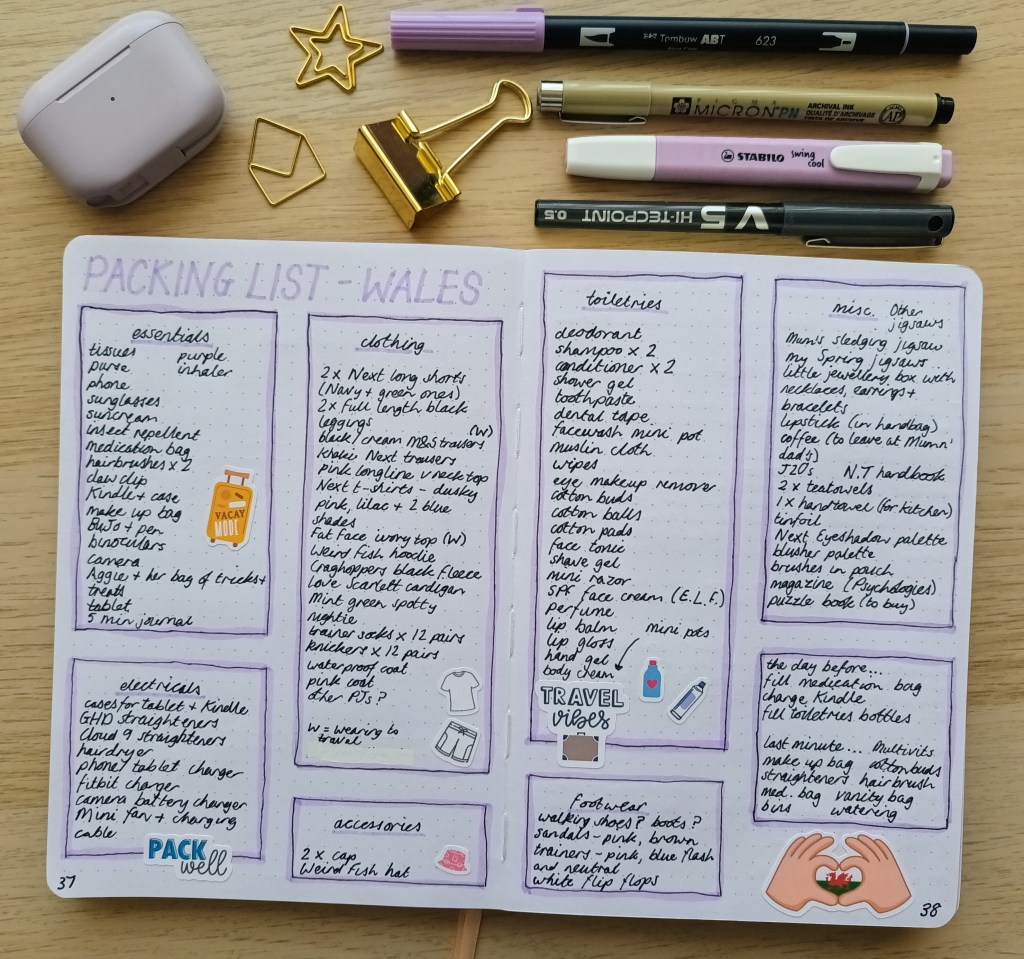 Tombow ABT 623
MICRON PN
ARCHIVAL INK
QUALITÉ D'ARCHIVAGE
AP
STABILO swing cool
HI-TECPOINT V5
0.5
PACKING LIST - WALES
essentials
tissues purple
purse inhaler
phone
sunglasses
suncream
insect repellent
medication bag
hairbrushes x 2
claw clip
Kindle + case
make up bag
BuJo + pen
binoculars
camera
Aggie + her bag of tricks +
treats
tablet
5 min journal
VACAY
MODE
electricals
cases for tablet + Kindle
GHD straighteners
Cloud 9 straighteners
hairdryer
phone/tablet charger
fitbit charger
camera battery charger
Mini fan + charging
cable
PACK
well
37
clothing
2 x Next long shorts
(Navy + green ones)
2 x Full length black
leggings
black/cream M&S trousers (W)
khaki Next trousers
pink longline v neck top
Next t-shirts - dusky
pink, lilac + 2 blue
shades
Fat Face ivory top (W)
Weird Fish hoodie
Craghoppers black fleece
Love Scarlett cardigan
Mint green spotty
nightie
trainer socks x 12 pairs
knickers x 12 pairs
waterproof coat
pink coat
other PJs?
W = wearing to
travel
accessories
2 x cap
Weird Fish hat
toiletries
deodorant
shampoo x 2
conditioner x 2
shower gel
toothpaste
dental tape
facewash mini pot
muslin cloth
wipes
eye makeup remover
cotton buds
cotton balls
cotton pads
face tonic
shave gel
mini razor
SPF face cream (E.L.F.)
perfume
lip balm mini pots
lip gloss
hand gel
body cream
TRAVEL
vibes
footwear
walking shoes? boots?
sandals - pink, brown
trainers - pink, blue flash
and neutral
white flip flops
misc. Other
jigsaws
Mum's sledging jigsaw
my Spring jigsaws
little jewellery box with
necklaces, earrings +
bracelets
lipstick (in handbag)
coffee (to leave at Mum n'
dad's)
J20s N.T handbook
2 x teatowels
1 x handtowel (for kitchen)
tinfoil
Next Eyeshadow palette
blusher palette
brushes in pouch
magazine (Psychologies)
puzzle book (to buy)
the day before...
fill medication bag
charge Kindle
fill toiletries bottles
last minute... Multivits
make up bag cottonbuds
straighteners hairbrush
med. bag vanity bag
bins watering
38